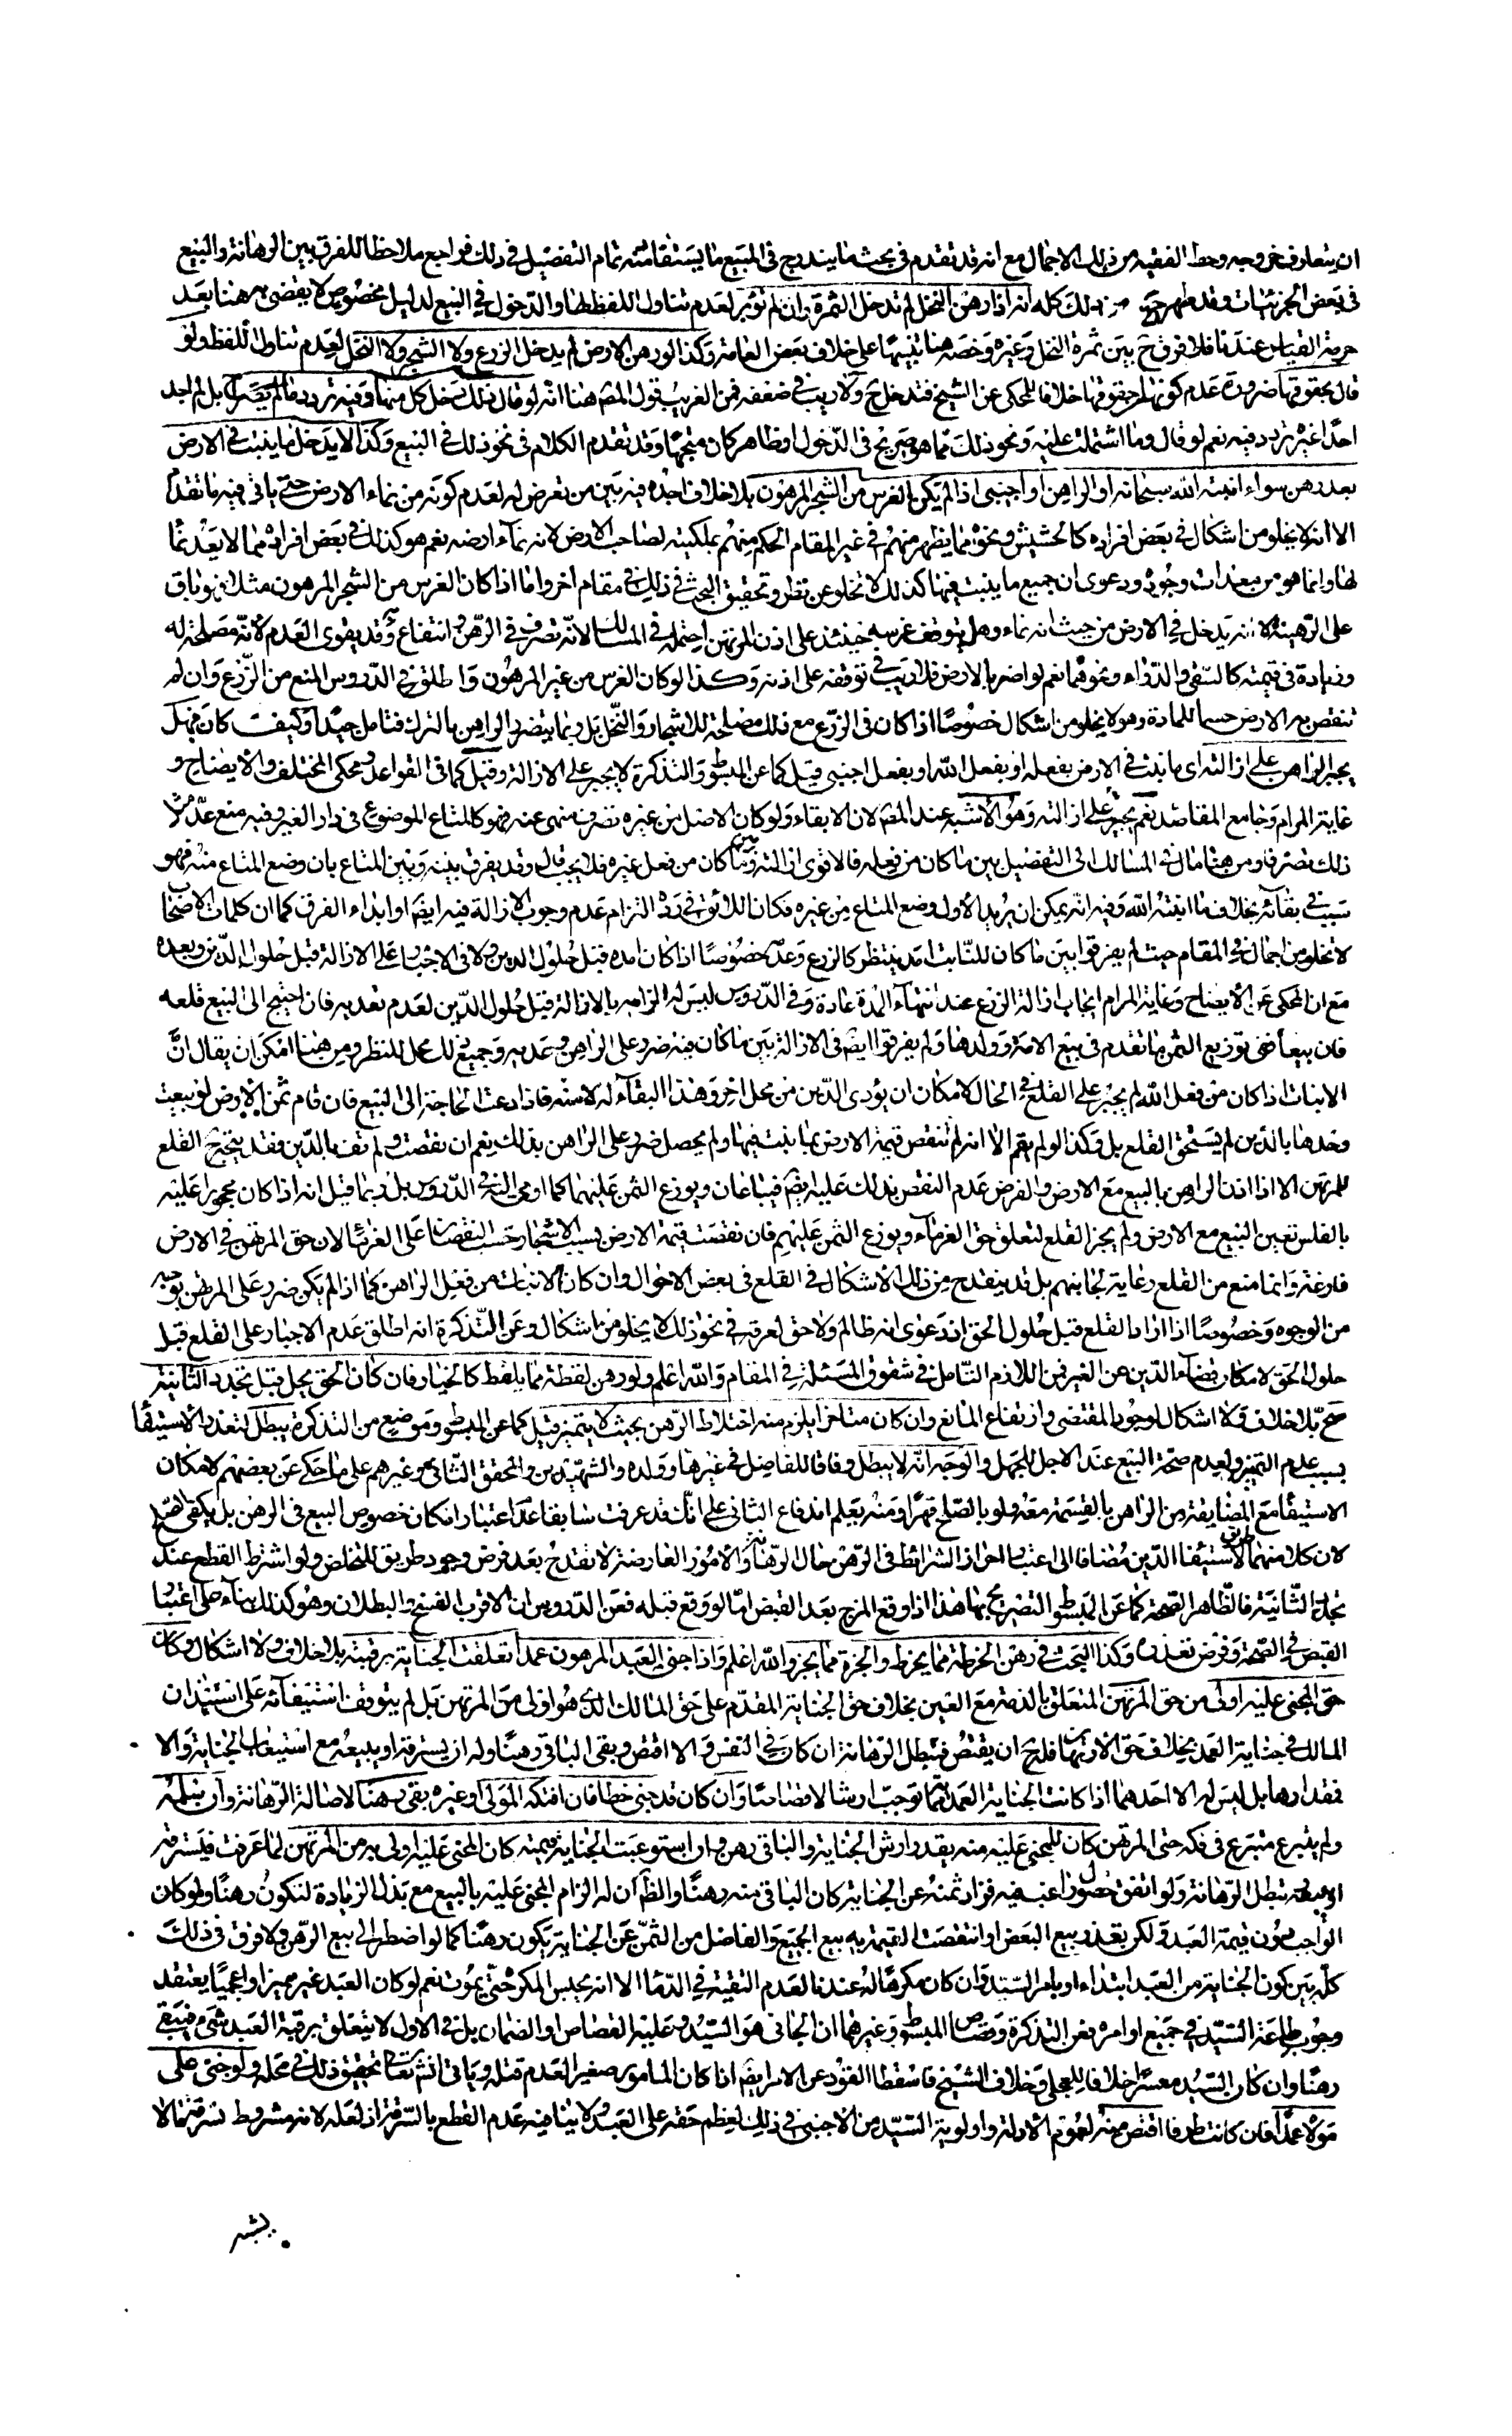 ان يتعارف خروجه وحظ الفقيه من ذلك الاجمال مع انه قد تقدم في بحث ما يندرج في المبيع ما يستفاد منه تمام التفصيل في ذلك فراجع ملاحظا للفرق بين الرهانة والبيع
في بعض الجزئيات وقد ظهر من ذلك كله انه اذا رهن النخل لم تدخل الثمرة وان لم تؤبر لعدم تناول اللفظ لها والدخول في البيع لدليل مخصوص لا يقضى به هنا بعد
حرمة القياس عندنا فلا فرق ح بين ثمرة النخل وغيره وخصه هنا تنبيها على خلاف بعض العامة وكذا لو رهن الارض لم يدخل الزرع ولا الشجر ولا النخل لعدم تناول اللفظ ولو
قال بحقوقها ضرورة عدم كونها من حقوقها خلافا للمحكى عن الشيخ فتدخل ح ولا ريب في ضعفه فمن الغريب قول المصنف هنا انه لو قال ذلك دخل كل منها وفيه تردد ما لم يصرح بل لم اجد
احدا غيره تردد فيه نعم لو قال وما اشتملت عليه ونحو ذلك مما هو صريح في الدخول او ظاهر كان متجها وقد تقدم الكلام في نحو ذلك في البيع وكذا لا يدخل ما ينبت في الارض
بعد رهن سواء انبته الله سبحانه او الراهن او اجنبى اذا لم يكن الغرس من الشجر المرهون بلا خلاف اجده فيه بين من تعرض له لعدم كونه من نماء الارض حتى ياتى فيه ما تقدم
الا انه لا يخلو من اشكال في بعض افراده كالحشيش ونحوه مما يظهر منهم في غير المقام الحكم منهم بملكيته لصاحب الارض لانه نماء ارضه نعم هو كذلك في بعض افراده مما لا يعد نماء
لها وانما هو من معدات وجوده ودعوى ان جميع ما ينبت فيها كذلك لا تخلو عن نظر وتحقيق البحث في ذلك في مقام اخر واما اذا كان الغرس من الشجر المرهون مثلا فهو باق
على الرهينة لا انه يدخل في الارض من حيث انه نماء وهل يتوقف غرسه حينئذ على اذن المرتهن احتمله في المسالك لانه تصرف في الرهن وانتفاع به وقد يقوى العدم لانه مصلحة له
وزيادة في قيمته كالسقى والدواء ونحوهما نعم لو اضر بالارض فلا ريب في توقفه على اذنه وكذا لو كان الغرس من غير المرهون واطلق في الدروس المنع من الزرع وان لم
تنقص به الارض حسما للمادة وهو لا يخلو من اشكال خصوصا اذا كان في الزرع مع ذلك مصلحة للاشجار والنخل بل ربما يتضرر الراهن بالترك فتامل جيدا وكيف كان فهل
يجبر الراهن على ازالته اى ما نبت في الارض بفعله او بفعل الله او بفعل اجنبى قيل كما عن المبسوط والتذكرة لا يجبر على الازالة وقيل كما في القواعد ومحكى المختلف والايضاح و
غاية المرام وجامع المقاصد نعم يجبر على ازالته وهو الاشبه عند المصنف لان الابقاء ولو كان الاصل من غيره تصرف منهى عنه فهو كالمتاع الموضوع في دار الغير وفيه منع عد مثل
ذلك تصرفا ومن هنا مال في المسالك الى التفصيل بين ما كان من فعله فالاقوى ازالته وبين ما كان من فعل غيره فلا يجب قال وقد يفرق بينه وبين المتاع بان وضع المتاع منه فهو
سبب في بقائه بخلاف ما انبته الله وفيه انه يمكن ان يريد الاول وضع المتاع من غيره فكان اللائق في رده التزام عدم وجوب الازالة فيه ايضا او ابداء الفرق كما ان كلمات الاصحاب
لا تخلو من اجمال في المقام حيث لم يفرقوا بين ما كان للنابت امد ينتظر كالزرع وعدمه خصوصا اذا كان امده قبل حلول الدين ولا في الاجبار على الازالة قبل حلول الدين وبعده
مع ان المحكى عن الايضاح وغاية المرام ايجاب ازالة الزرع عند انتهاء المدة عادة وفي الدروس ليس له الزامه بالازالة قبل حلول الدين لعدم تعديه فان احتيج الى البيع قلعه
فان بيعا ففى توزيع الثمن ما تقدم في بيع الامة وولدها ولم يفرقوا ايضا في الازالة بين ما كان فيه ضرر على الراهن وعدمه وجميع ذلك محل للنظر ومن هنا امكن ان يقال ان
الانبات اذا كان من فعل الله لم يجبر على القلع في الحال لامكان ان يؤدى الدين من محل اخر وهذا البقاء له لامنه فاذا دعت الحاجة الى البيع فان قام ثمن الارض لو بيعت
وحدها بالدين لم يستحق القلع بل وكذا لو لم يقم الا انه لم تنقص قيمة الارض بما نبت فيها ولم يحصل ضرر على الراهن بذلك نعم ان نقصت ولم تف بالدين فقد يتجه القلع
للمرتهن الا اذا اذن الراهن بالبيع مع الارض والفرض عدم النقص بذلك عليه ايضا فيباعان ويوزع الثمن عليهما كما اومى اليه في الدروس بل ربما قيل انه اذا كان محجورا عليه
بالفلس تعين البيع مع الارض ولم يجز القلع لتعلق حق الغرماء ويوزع الثمن عليهم فان نقصت قيمة الارض بسبب الاشجار حسب النقصان على الغرماء لان حق المرتهن في الارض
فارغة وانما منع من القلع رعاية لجانبهم بل قد ينقدح من ذلك الاشكال في القلع في بعض الاحوال وان كان الانبات من فعل الراهن كما اذا لم يكن ضرر على المرتهن بوجه
من الوجوه وخصوصا اذا اراد القلع قبل حلول الحق اذ دعوى انه ظالم ولا حق لعرقه في نحو ذلك لا يخلو من اشكال وعن التذكرة انه اطلق عدم الاجبار على القلع قبل
حلول الحق لامكان قضاء الدين من الغير فمن اللازم التامل في شقوق المسئلة في المقام والله اعلم ولو رهن لقطة مما يلقط كالخيار فان كان الحق يحل قبل تجدد الثانية
صح بلا خلاف ولا اشكال لوجود المقتضى وارتفاع المانع وان كان متاخرا يلزم منه اختلاط الرهن بحيث لا يتميز قيل كما عن المبسوط وموضع من التذكرة يبطل لتعذر الاستيفاء
بسبب عدم التميز ولعدم صحة البيع عند الاجل للجهل والوجه انه لا يبطل وفاقا للفاضل في غيرها وولده والشهيدين والمحقق الثانى وغيرهم على ما حكى عن بعضهم لامكان
الاستيفاء مع المضايقة من الراهن بالقسمة معه ولو بالصلح قهرا ومنه يعلم اندفاع الثانى على انك قد عرفت سابقا عدم اعتبار امكان خصوص البيع في الرهن بل يكفى هو او الصلح
لان كلا منهما طريق لاستيفاء الدين مضافا الى اعتبار احراز الشرائط في الرهن حال الرهانة والامور العارضة لا تقدح بعد فرض وجود طريق للتخلص ولو اشترط القطع عند
تجدد الثانية فالظاهر الصحة كما عن المبسوط التصريح بها هذا اذا وقع المزج بعد القبض اما لو وقع قبله فعن الدروس ان الاقرب الفسخ والبطلان وهو كذلك بناء على اعتبار
القبض في الصحة وفرض تعذره وكذا البحث في رهن الخرطة مما يخرط والجزة مما يجز والله اعلم واذا جنى العبد المرهون عمدا تعلقت الجناية برقبته بلا خلاف ولا اشكال وكان
حق المجنى عليه اولى من حق المرتهن المتعلق بالذمة مع العين بخلاف حق الجناية المقدم على حق المالك الذى هو اولى من المرتهن بل لم يتوقف استيفائه على استيذان
المالك في جناية العمد بخلاف حق الارتهان فله ح ان يقتص فتبطل الرهانة ان كان في النفس والا اقتص وبقى الباقى رهنا وله ان يسترقه او يبيعه مع استيعاب الجناية والا
فقدارها بل ليس له الا احدهما اذا كانت الجناية العمد مما توجب ارشا لا قصاصا وان كان قد جنى خطا فان افتكه المولى او غيره بقى رهنا لاصالة الرهانة وان سلمه
ولم يتبرع متبرع في فكه حتى المرتهن كان للمجنى عليه منه بقدر ارش الجناية والباقى رهن وان استوعبت الجناية قيمته كان المجنى عليه اولى به من المرتهن لما عرفت فيسترقه
او يبيعه فتبطل الرهانة ولو اتفق حصول راغب فيه فزاد ثمنه عن الجناية كان الباقى منه رهنا والظاهر ان له الزام المجنى عليه بالبيع مع بذل الزيادة لتكون رهنا ولو كان
الواجب دون قيمة العبد ولكن تعذر بيع البعض او انتقصت القيمة به بيع الجميع والفاضل من الثمن عن الجناية يكون رهنا كما لو اضطر الى بيع الرهن ولا فرق في ذلك
كله بين كون الجناية من العبد ابتداء او بامر السيد وان كان مكرها له عندنا لعدم التقية في الدماء الا انه يحبس المكره حتى يموت نعم لو كان العبد غير مميز او اعجميا يعتقد
وجوب طاعة السيد في جميع اوامره فعن التذكرة وقصاص المبسوط وغيرهما ان الجانى هو السيد وعليه القصاص او الضمان بل في الاول لا يتعلق برقبة العبد شىء فيبقى
رهنا وان كان السيد معسرا خلافا للمحكى وخلاف الشيخ فاسقطا القود عن الامر ايضا اذا كان المامور صغيرا لعدم قتله وياتى انشاء الله تعالى تحقيق ذلك في محله ولو جنى على
مولاه عمدا فان كانت طرفا اقتص منه لعموم الادلة واولوية السيد من الاجنبى في ذلك لعظم حقه على العبد ولا ينافيه عدم القطع بالسرقة اذ لعله لانه مشروط بسرقة مالا
يشبه